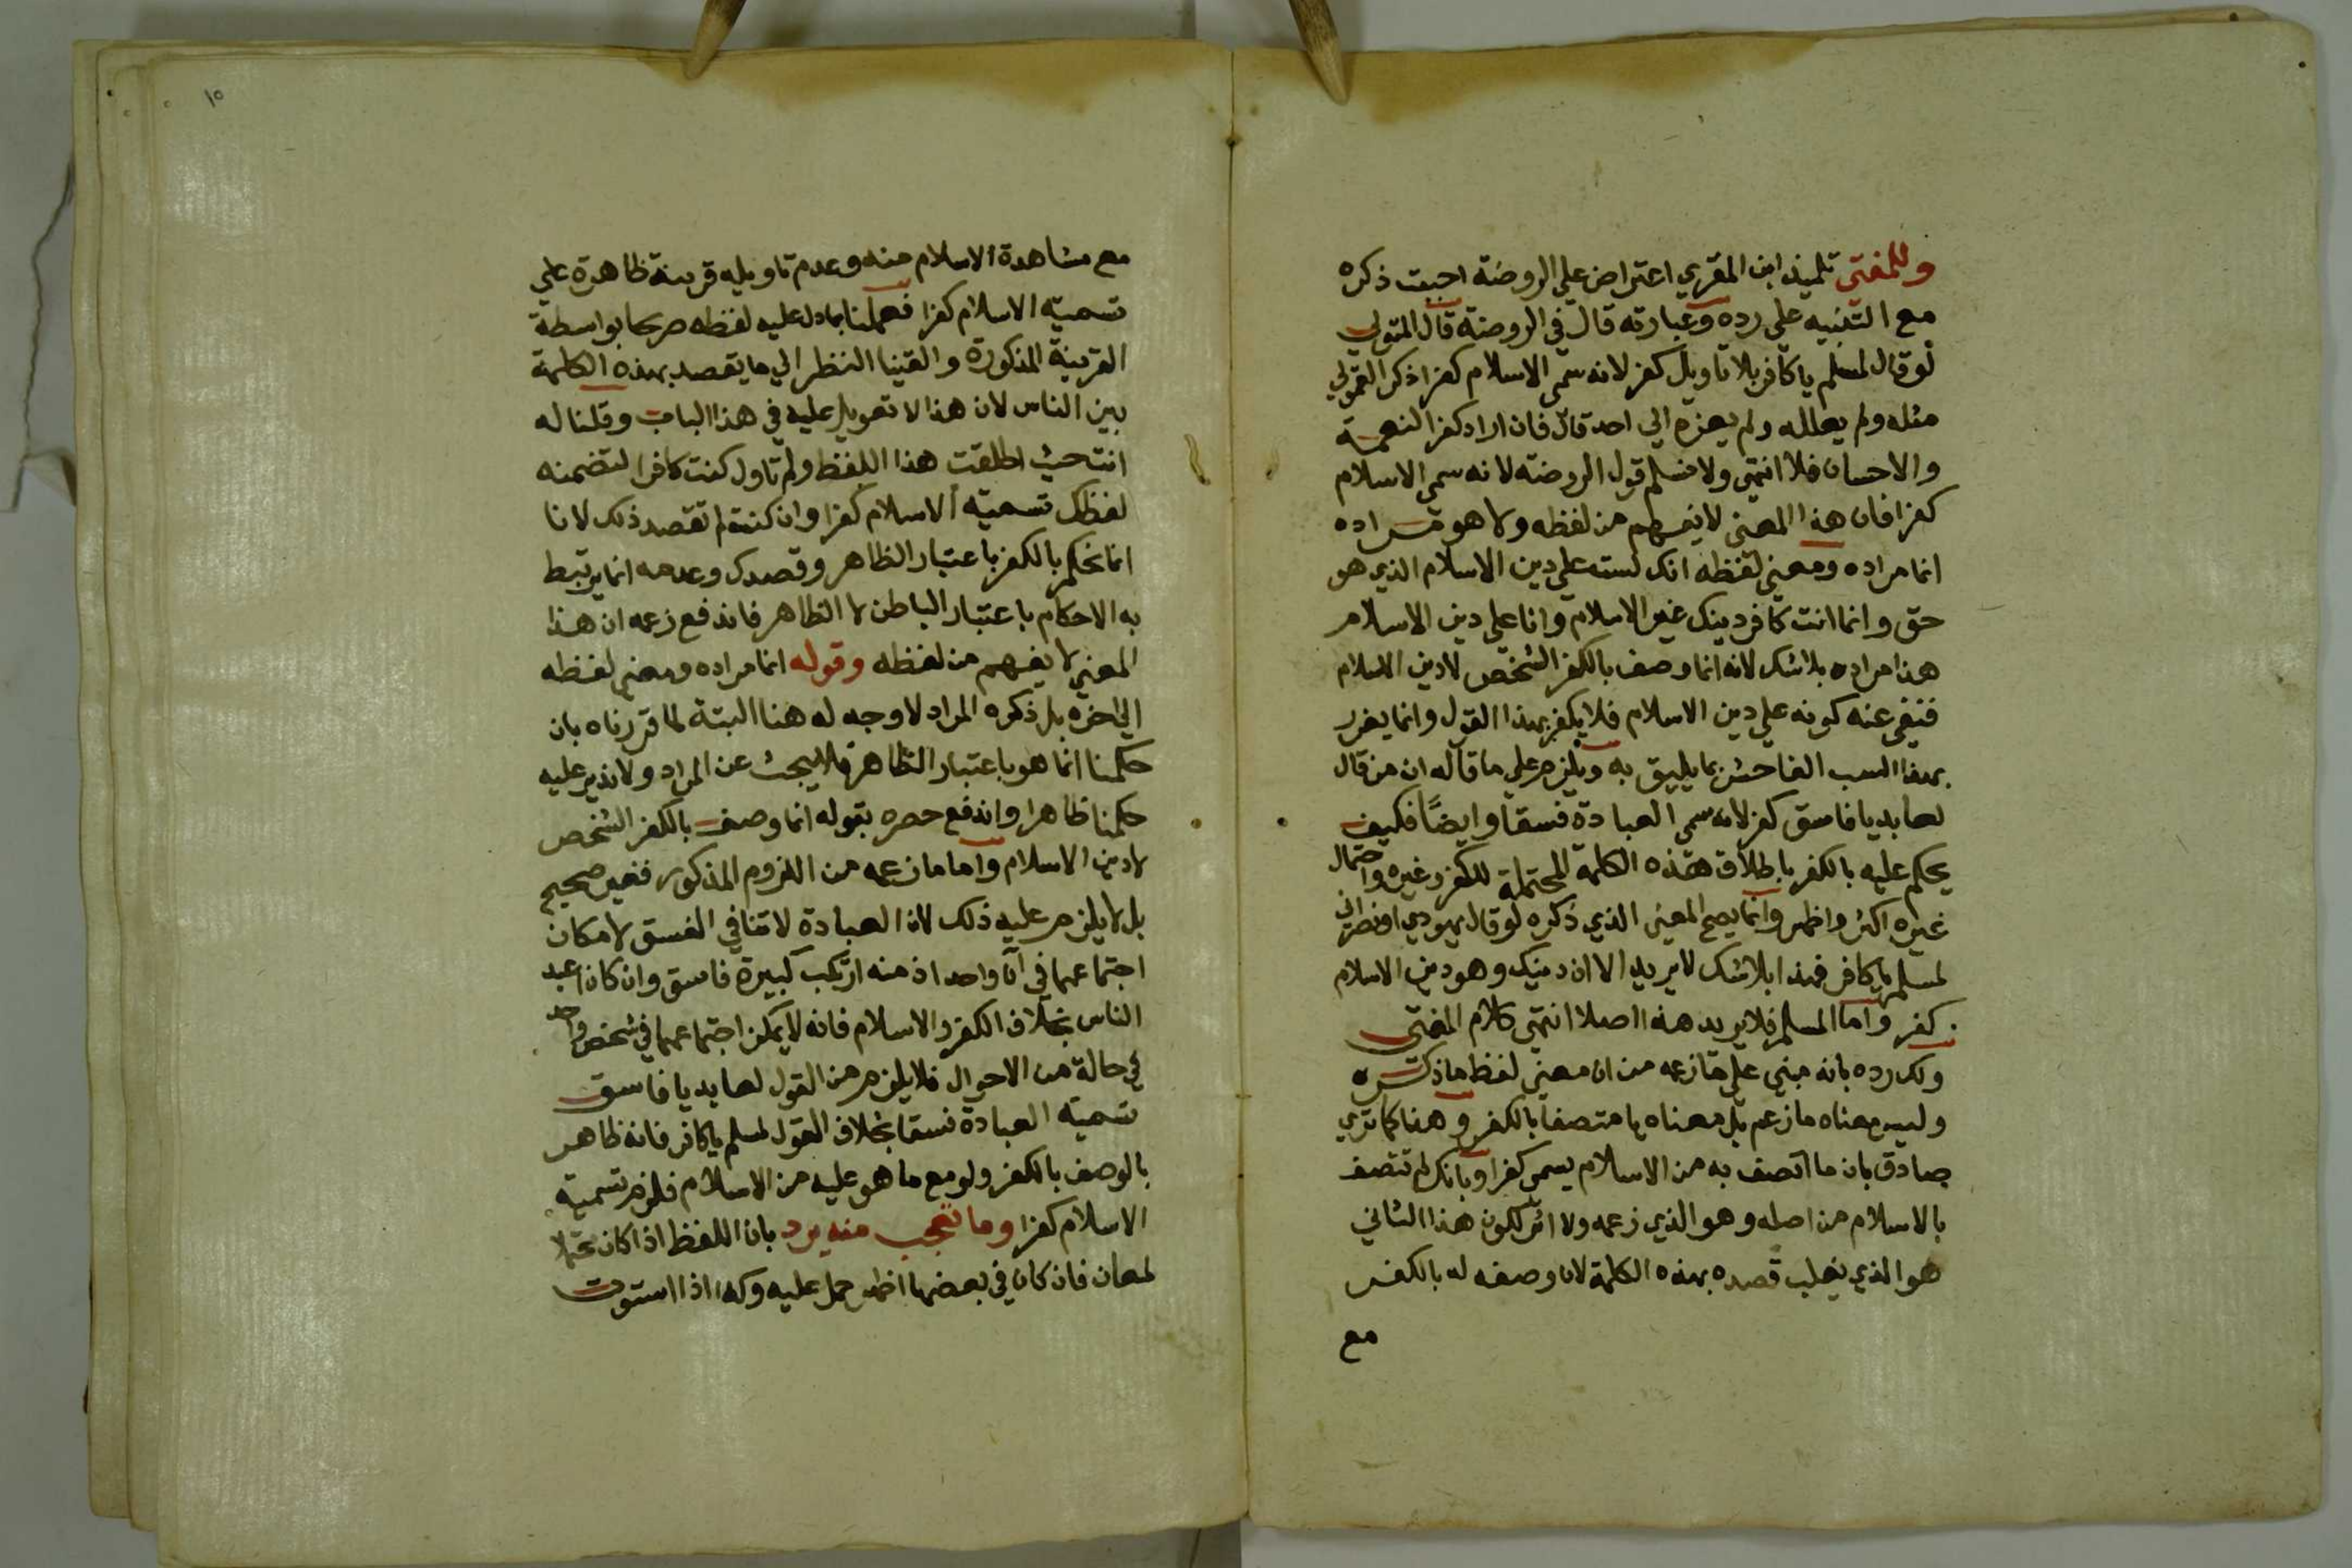 وللمفتى تلميذ ابن المقري اعتراض علي الروضة احببت ذكره
مع التنبيه علي رده وعبارته قال في الروضة قال المتولي
لو قال لمسلم يا كافر بلا تاويل كفر لانه سمى الاسلام كفرا ذكر القمولي
مثله ولم يعلله ولم يعزه الي احد قال فان اراد كفر النعمة
والاحسان فلا انتهي ولا نسلم قول الروضة لانه سمي الاسلام
كفرا فان هذا المعني لا يفهم من لفظه ولا هو مراده
انما مراده ومعني لفظه انك لست علي دين الاسلام الذي هو
حق وانما انت كافر دينك غير الاسلام وانا علي دين الاسلام
هذا مراده بلا شك لانه انما وصف بالكفر الشخص لا دين الاسلام
فنفي عنه كونه علي دين الاسلام فلا يكفر بهذا القول وانما يعزر
بهذا السب الفاحش بما يليق به ويلزم علي ما قاله ان من قال
لعابد يا فاسق كفر لانه سمى العبادة فسقا وايضًا فكيف
يحكم عليه بالكفر باطلاق هذه الكلمة المحتملة للكفر وغيره واحتمال
غيره اكثر واظهر وانما يصح المعني الذي ذكره لو قال يهودي او نصراني
لمسلم يا كافر فهذا بلا شك لا يريد الا ان دينك وهو دين الاسلام
كفر واما المسلم فلا يريد هذا اصلا انتهي كلام المفتى
ولك رده بانه مبني علي ما زعمه من ان معني لفظه ما ذكره
وليس معناه ما زعم بل معناه يا متصفا بالكفر وهذا كما تري
صادق بان ما اتصف به من الاسلام يسمى كفرا وبانك لم تتصف
بالاسلام من اصله وهو الذي زعمه ولا اثر لكون هذا الثاني
هو الذي يغلب قصده بهذه الكلمة لان وصفه له بالكفر
مع
١٥
مع مشاهدة الاسلام منه وعدم تاويله قرينة ظاهرة علي
تسمية الاسلام كفرا فعملنا بما دل عليه لفظه صريحا بواسطة
القرينة المذكورة والقينا النظر الي ما يقصد بهذه الكلمة
بين الناس لان هذا لا تعويل عليه في هذا الباب وقلنا له
انت حيث اطلقت هذا اللفظ ولم تاول كنت كافرا لتضمنه
لفظك تسمية الاسلام كفرا وان كنت لم تقصد ذلك لانا
انما نحكم بالكفر باعتبار الظاهر وقصدك وعدمه انما يرتبط
به الاحكام باعتبار الباطن لا الظاهر فاندفع زعمه ان هذا
المعني لا يفهم من لفظه وقوله انما مراده ومعني لفظه
الي اخره بل ذكره المراد لا وجه له هنا البتة لما قررناه بان
حكمنا انما هو باعتبار الظاهر فلا يبحث عن المراد ولا ندير عليه
حكمنا ظاهرا واندفع حصره بقوله انما وصف بالكفر الشخص
لا دين الاسلام واما ما زعمه من اللزوم المذكور فغير صحيح
بل لا يلزم عليه ذلك لان العبادة لا تنافي الفسق لامكان
اجتماعهما في آن واحد اذ منه ارتكب كبيرة فاسق وان كان اعبد
الناس بخلاف الكفر والاسلام فانه لا يمكن اجتماعهما في شخص واحد
في حالة من الاحوال فلا يلزم من القول لعابد يا فاسق
تسمية العبادة فسقا بخلاف القول لمسلم يا كافر فانه ظاهر
بالوصف بالكفر ولو مع ما هو عليه من الاسلام فلزم تسمية
الاسلام كفرا وما تعجب منه يرد بان اللفظ اذا كان محتملا
لمعان فان كان في بعضها اظهر حمل عليه وكذا اذا استوت